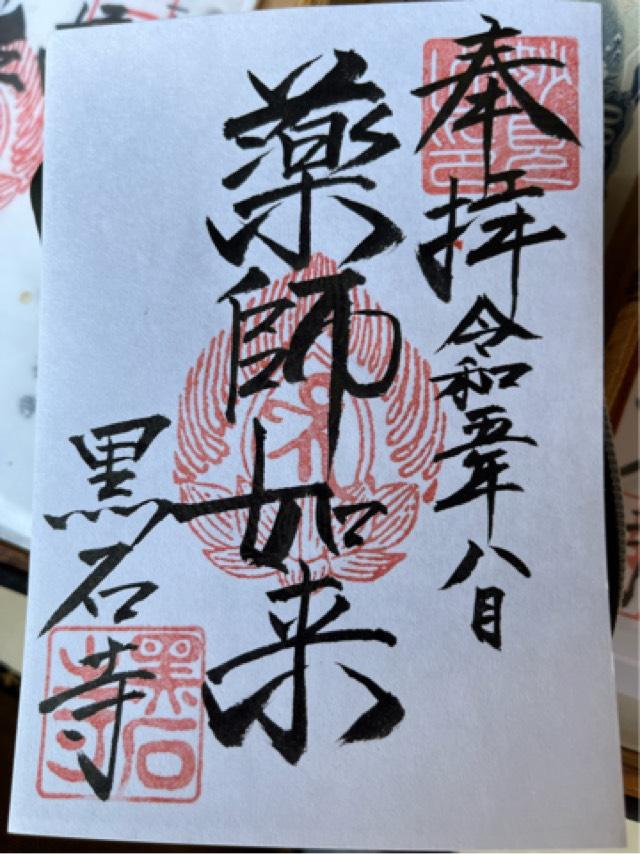 奉拝 令和五年 八月
薬師如来
黒石寺
黑石寺